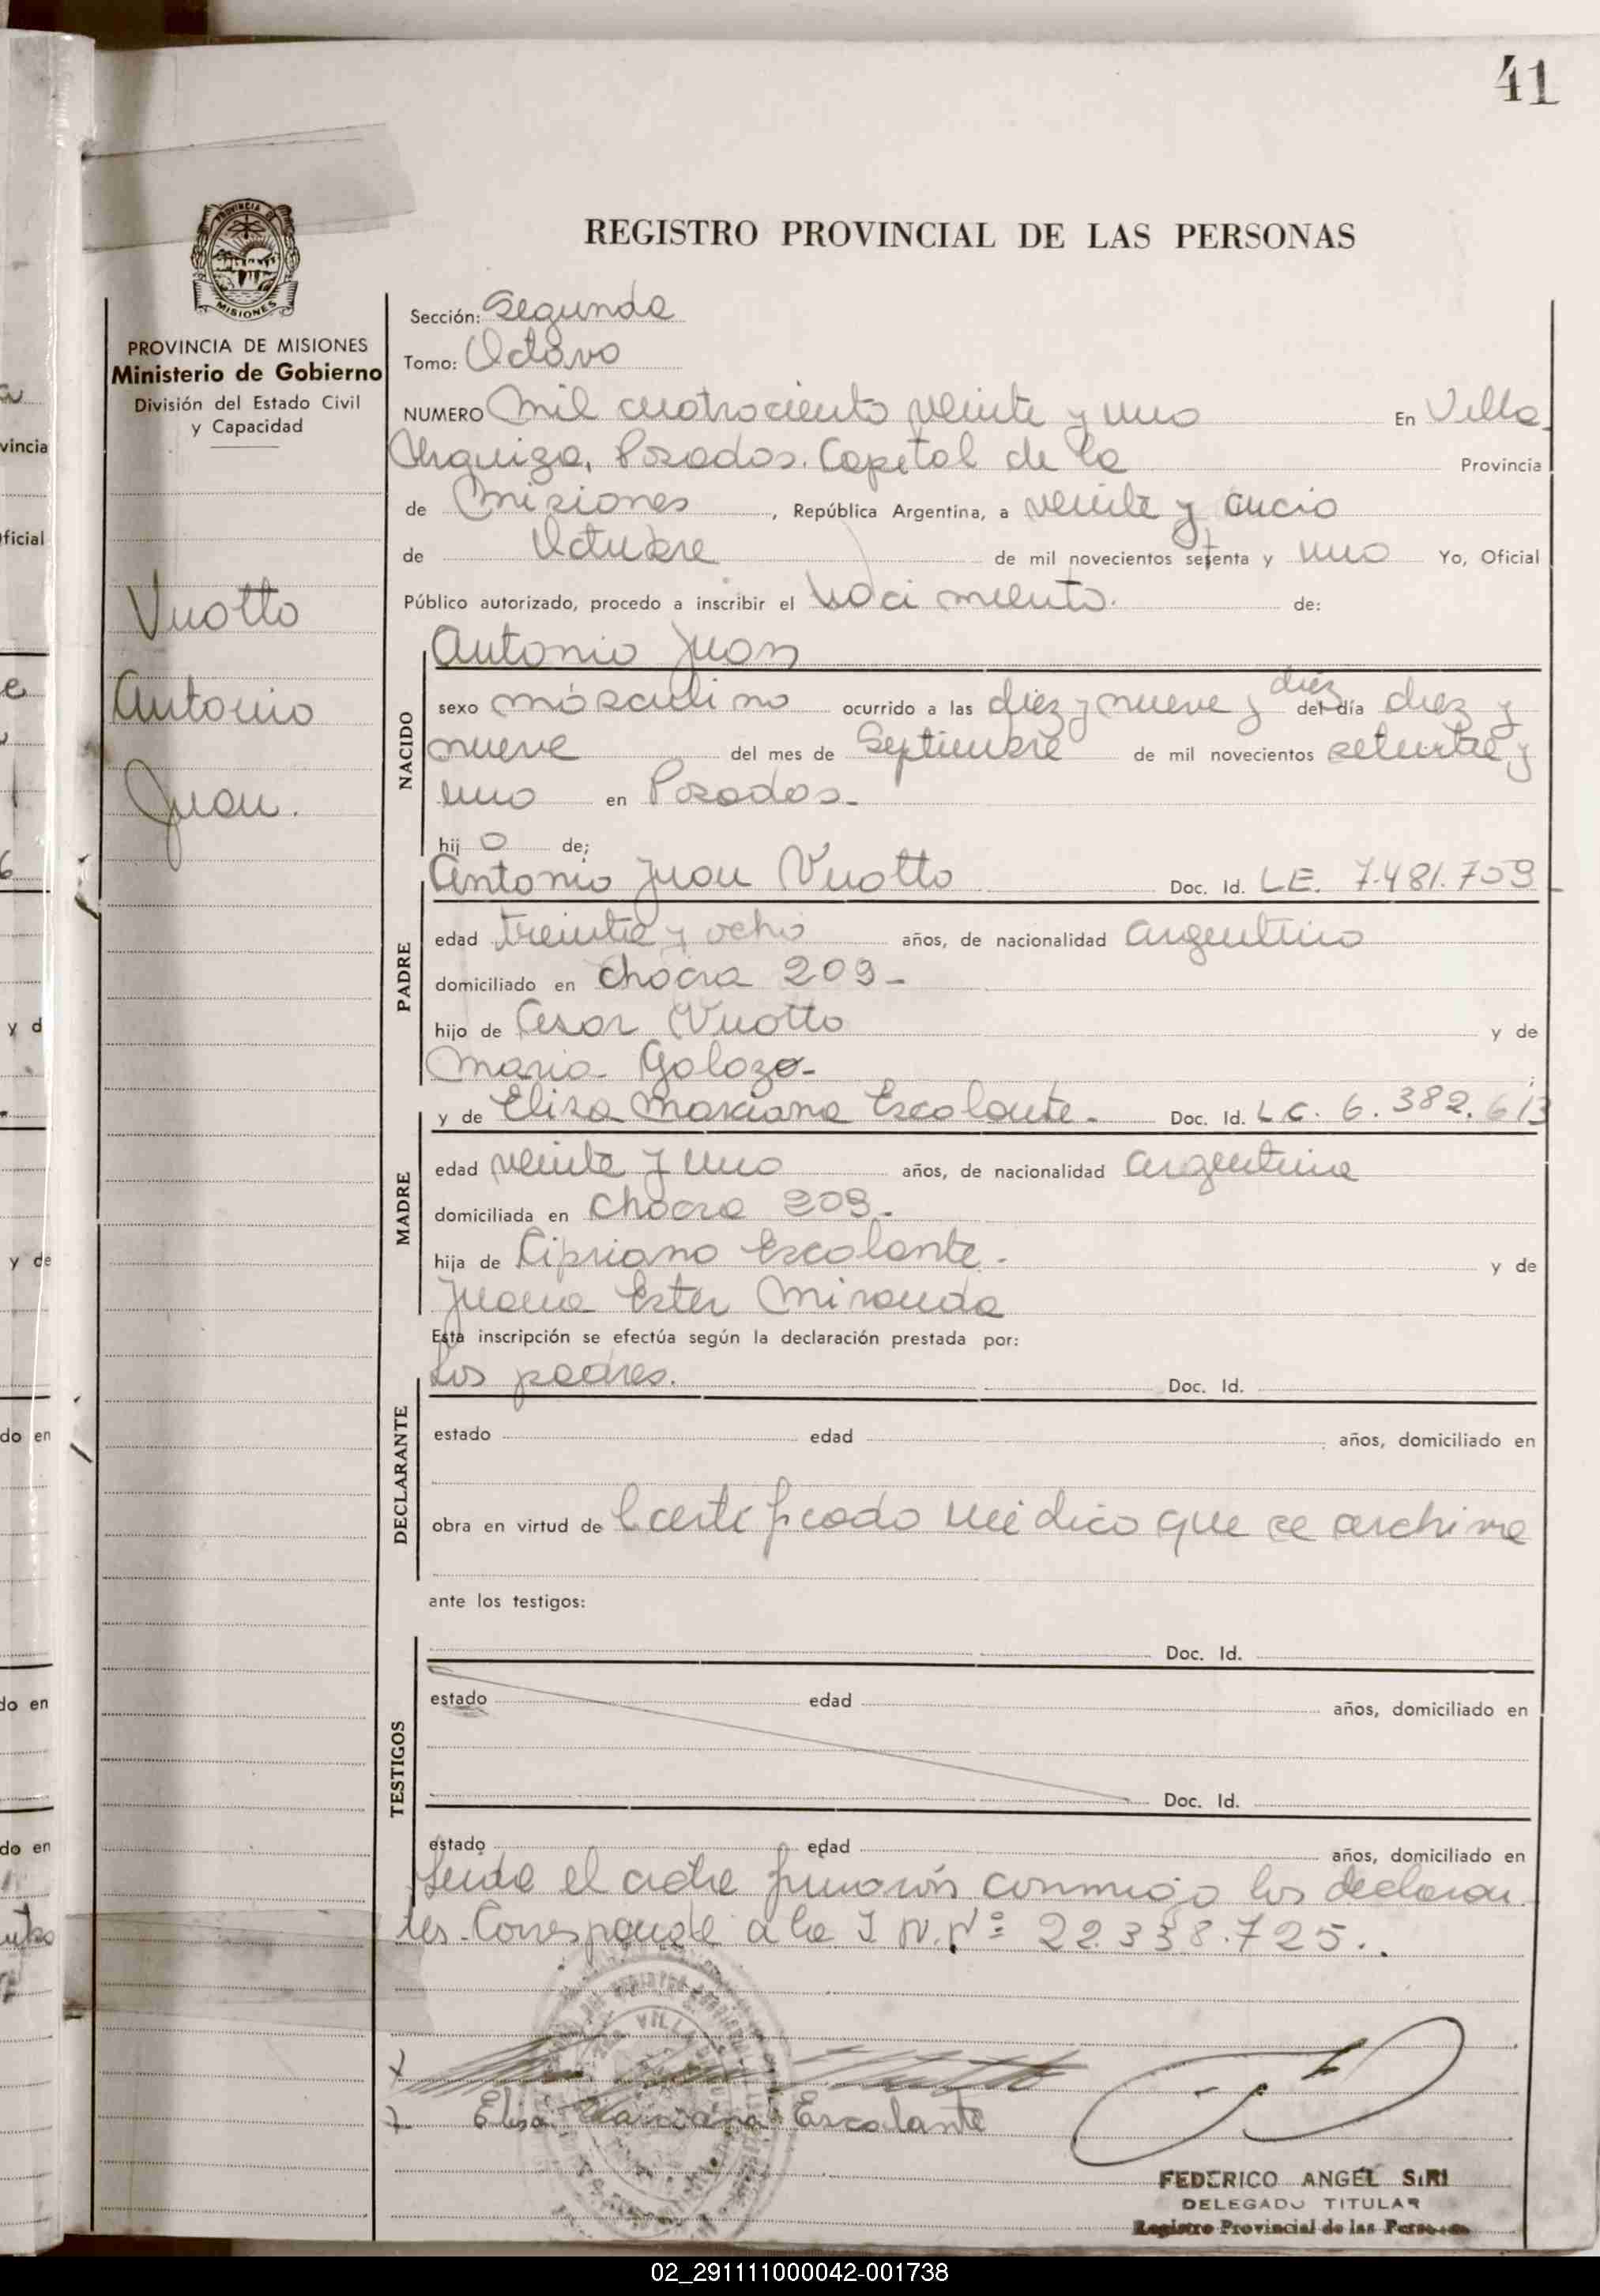 41
REGISTRO PROVINCIAL DE LAS PERSONAS
PROVINCIA DE MISIONES
PROVINCIA DE MISIONES
Ministerio de Gobierno
División del Estado Civil
y Capacidad
Vuotto
Antonio
Juan.
Sección: Segunda
Tomo: Octavo
NUMERO Mil cuatrociento veinte y uno En Villa
Urquiza, Posadas. Capital de la Provincia
de Misiones, República Argentina, a veinte y cinco
de Octubre de mil novecientos setenta y uno Yo, Oficial
Público autorizado, procedo a inscribir el Nacimiento. de:
NACIDO
Antonio Juan
sexo másculino ocurrido a las diez y nueve y diez del día diez y
nueve del mes de Septiembre de mil novecientos setenta y
uno en Posadas.-
hijo de;
PADRE
Antonio Juan Vuotto Doc. Id. L.E. 7.481.759
edad treinta y ocho años, de nacionalidad argentino
domiciliado en chacra 209-
hijo de Cesar Vuotto y de
Maria- Galozo-
MADRE
y de Elisa Marciana Escalante.- Doc. Id. L.C. 6.382.613
edad veinte y uno años, de nacionalidad argentina
domiciliada en Chacra 209.-
hija de Cipriano Escalante.- y de
Juana Ester Miranda
Esta inscripción se efectúa según la declaración prestada por:
DECLARANTE
Los padres. Doc. Id.
estado edad años, domiciliado en
obra en virtud de Certificado médico que se archiva
ante los testigos:
TESTIGOS
Doc. Id.
estado edad años, domiciliado en
Doc. Id.
estado edad años, domiciliado en
Leida el acta firmarón conmigo los declaran
tes. Corresponde a la I N. Nº 22.338.725..
Elisa Marciana Escalante
VILLA
FEDERICO ANGEL SIRI
DELEGADO TITULAR
Registro Provincial de las Personas
vincia
ficial
y d
y de
do en
do en
do en
02_291111000042-001738